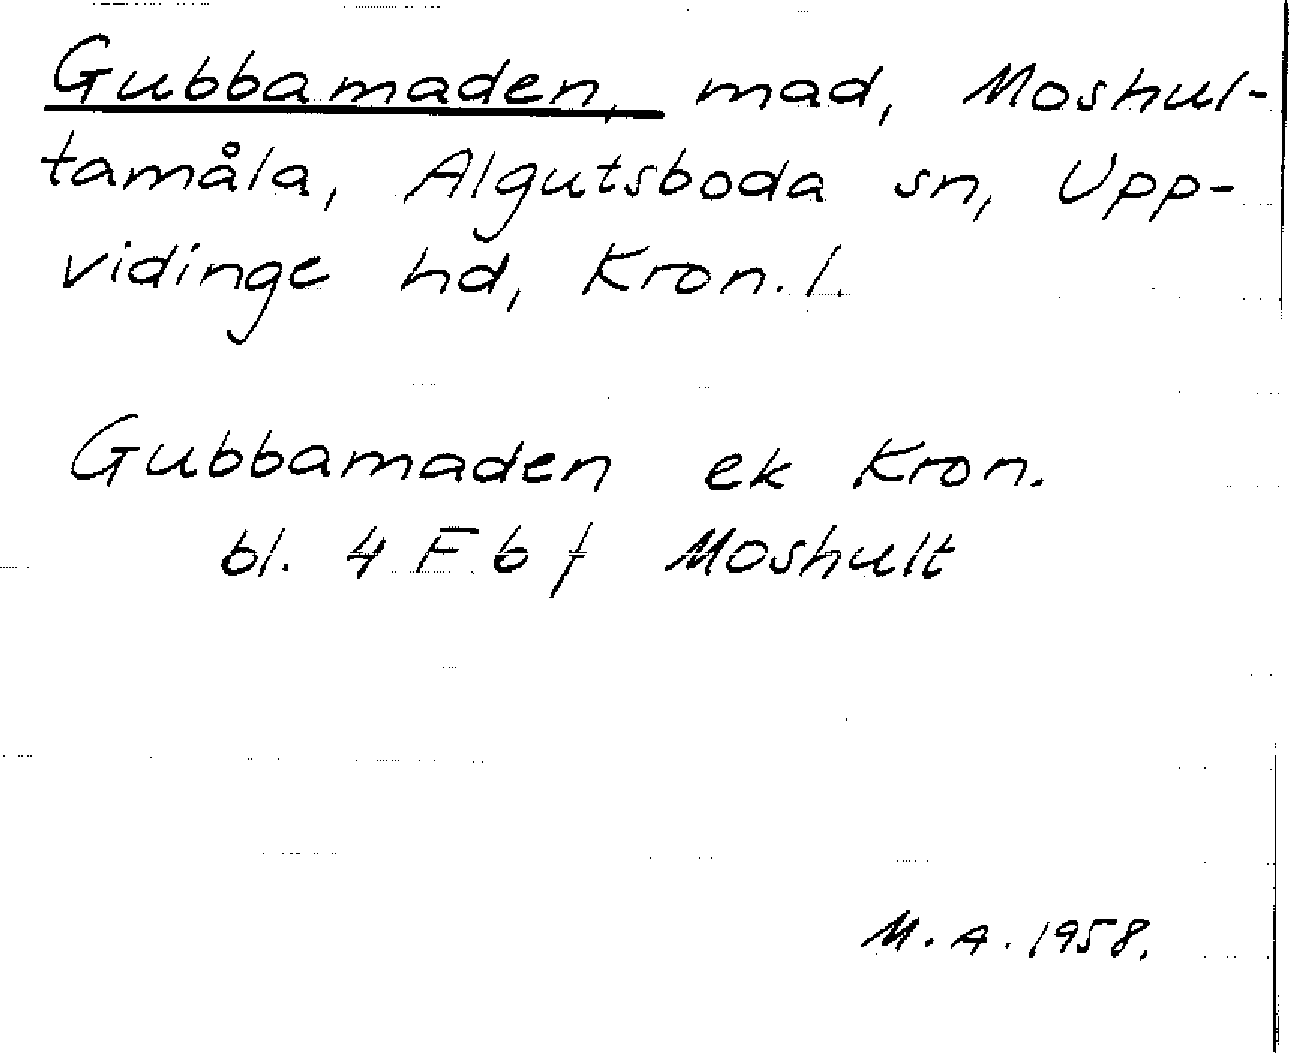 Gubbamaden, mad, Moshul-
tamåla, Algutsboda sn, Upp-
vidinge hd, Kron. l.
Gubbamaden ek Kron.
bl. 4 F 6 f Moshult
M. A. 1958.